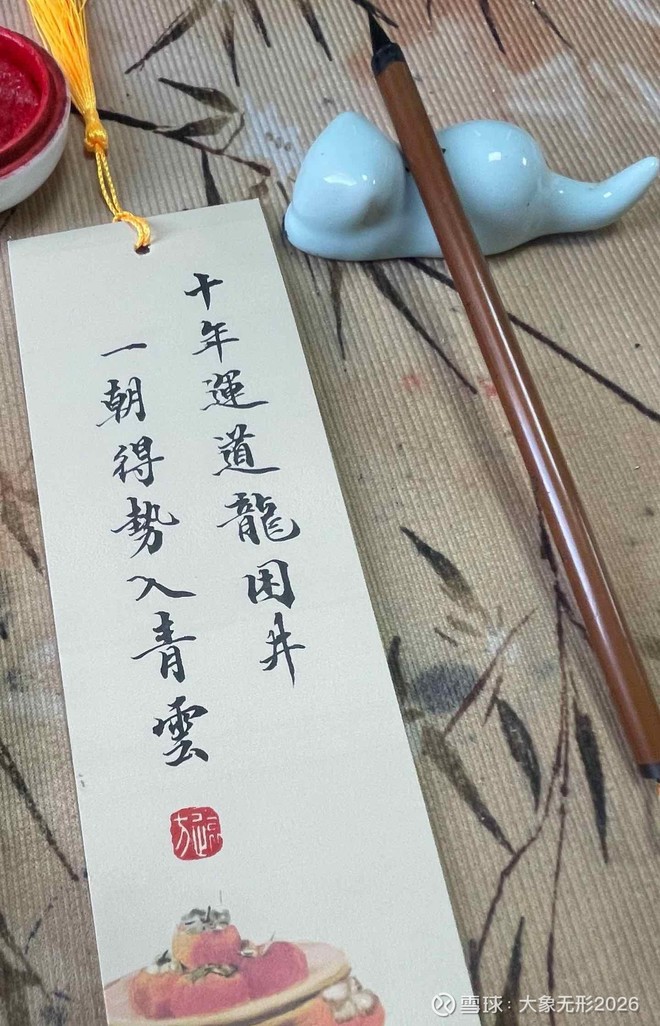 十年運道龍困井
一朝得勢入青雲
雪球：大象无形2026